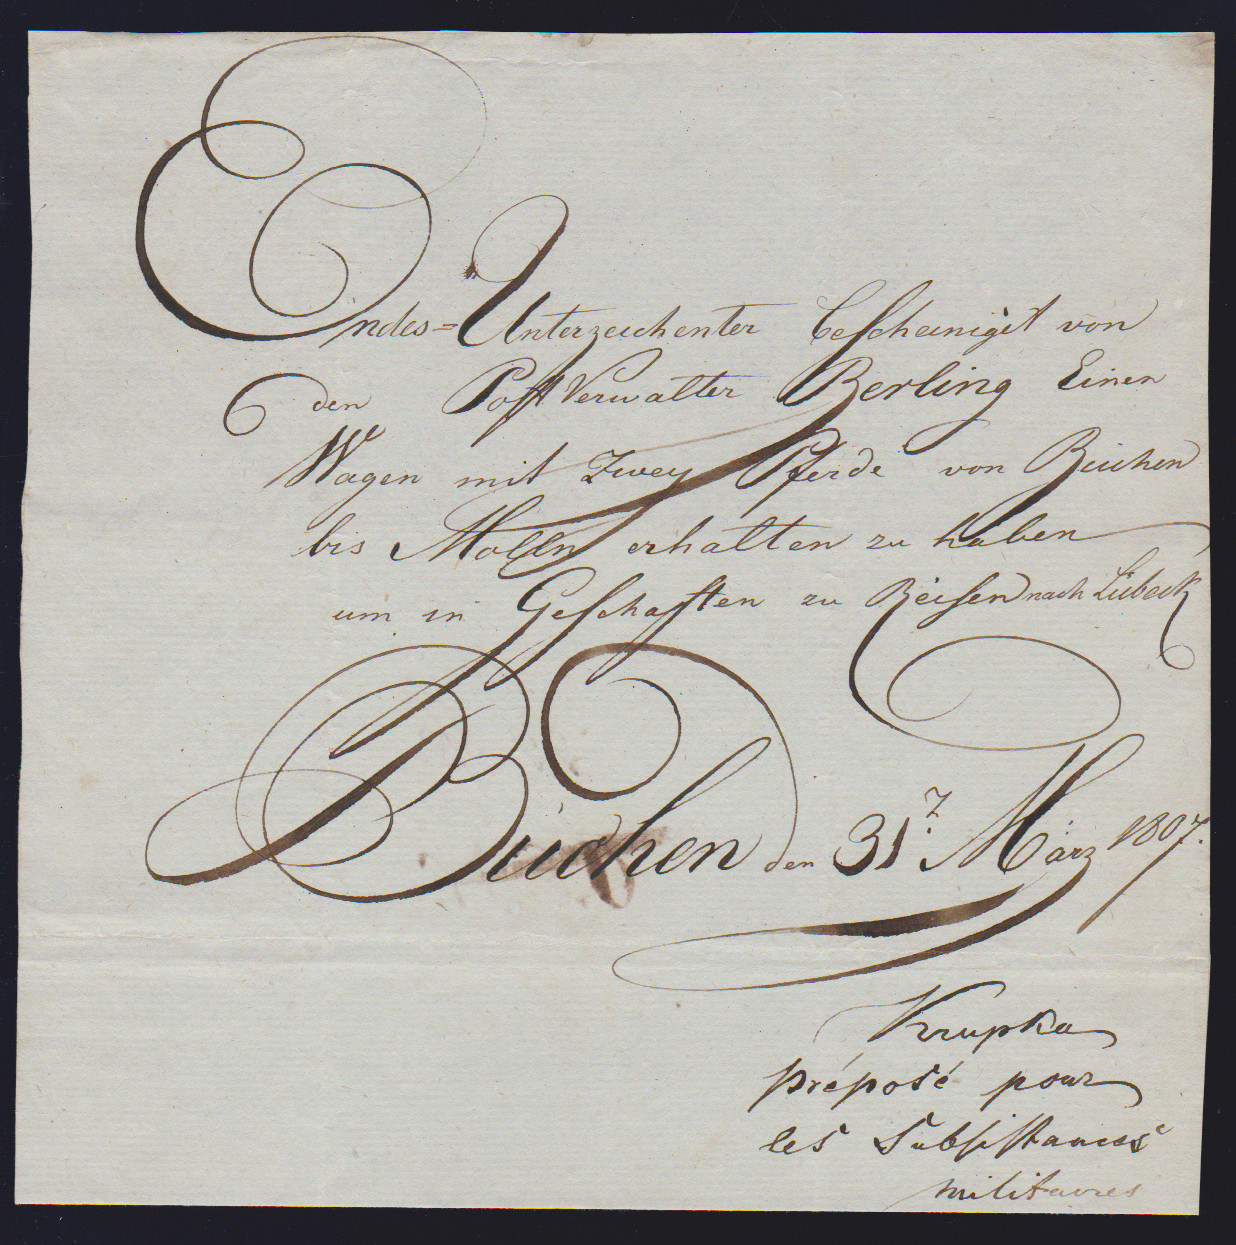 Endes=Unterzeichenter bescheinigt von
den Post Verwalter Berling Einen
Wagen mit Zwey Pferde von Büchen
bis Mölln erhalten zu haben
um in Geschaften zu Reisen nach Lübeck
Büchen den 31.ᵗ März 1807.
Krupka
préposé pour
les Subsistances
militaires